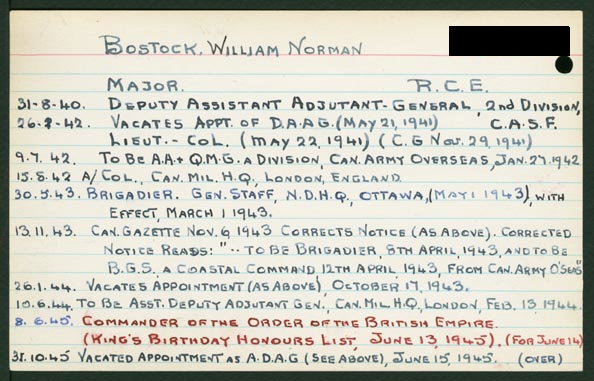 BOSTOCK, WILLIAM NORMAN
MAJOR. R.C.E.
31-8-40. DEPUTY ASSISTANT ADJUTANT-GENERAL, 2nd DIVISION,
26-2-42. VACATES APPT. OF D.A.A.G. (MAY 21, 1941) C.A.S.F.
LIEUT.-COL. (MAY 22, 1941) (C.G NOV. 29, 1941)
9.7.42. TO BE A.A. + Q.M.G. A DIVISION, CAN. ARMY OVERSEAS, JAN. 27.1942
15.8.42 A/COL., CAN. MIL. H.Q., LONDON, ENGLAND
30.5.43. BRIGADIER. GEN. STAFF, N.D.H.Q., OTTAWA, (MAY 1 1943), WITH
EFFECT, MARCH 1 1943.
13.11.43. CAN. GAZETTE NOV. 6, 1943 CORRECTS NOTICE (AS ABOVE). CORRECTED
NOTICE READS: "-- TO BE BRIGADIER, 8TH APRIL, 1943, AND TO BE
B.G.S. A COASTAL COMMAND 12TH APRIL, 1943, FROM CAN. ARMY O'SEAS"
26.1.44. VACATES APPOINTMENT (AS ABOVE), OCTOBER 17, 1943.
10.6.44. TO BE ASST. DEPUTY ADJUTANT GEN., CAN. MIL. H.Q., LONDON, FEB. 13 1944.
8.6.45. COMMANDER OF THE ORDER OF THE BRITISH EMPIRE.
(KING'S BIRTHDAY HONOURS LIST, JUNE 13, 1945). (FOR JUNE 14)
31.10.45 VACATED APPOINTMENT AS A.D.A.G (SEE ABOVE), JUNE 15, 1945. (OVER)